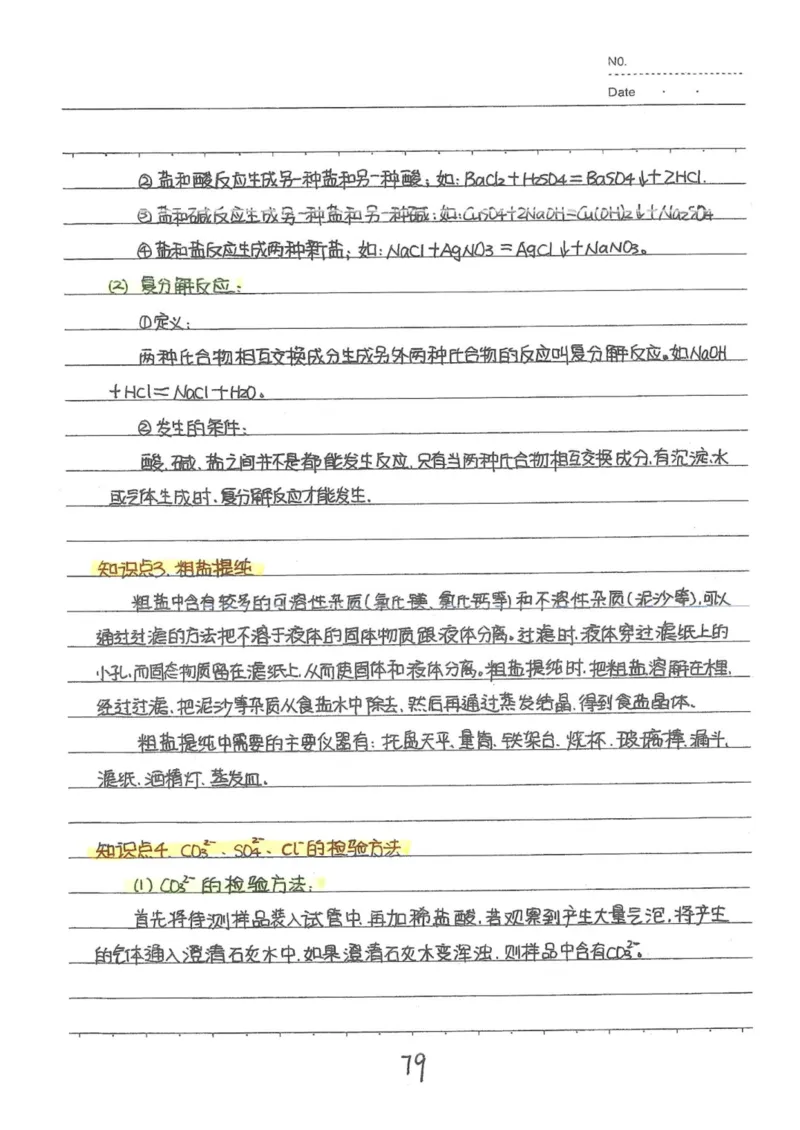 NO.
Date
②盐和酸反应生成另一种盐和另一种酸；如：BaCl₂+H₂SO₄=BaSO₄↓+2HCl.
③盐和碱反应生成另一种盐和另一种碱；如：CuSO₄+2NaOH=Cu(OH)₂↓+Na₂SO₄
④盐和盐反应生成两种新盐；如：NaCl+AgNO₃=AgCl↓+NaNO₃。
(2) 复分解反应：
①定义：
两种化合物相互交换成分生成另外两种化合物的反应叫复分解反应。如NaOH
+HCl=NaCl+H₂O。
②发生的条件：
酸、碱、盐之间并不是都能发生反应，只有当两种化合物相互交换成分，有沉淀、水
或气体生成时，复分解反应才能发生.
知识点3. 粗盐提纯
粗盐中含有较多的可溶性杂质(氯化镁、氯化钙等)和不溶性杂质(泥沙等),可以
通过过滤的方法把不溶于液体的固体物质跟液体分离。过滤时，液体穿过滤纸上的
小孔，而固态物质留在滤纸上，从而使固体和液体分离。粗盐提纯时，把粗盐溶解在水里，
经过过滤，把泥沙等杂质从食盐水中除去，然后再通过蒸发结晶，得到食盐晶体、
粗盐提纯中需要的主要仪器有：托盘天平、量筒、铁架台、烧杯、玻璃棒、漏斗、
滤纸、酒精灯、蒸发皿。
知识点4. CO₃²⁻、SO₄²⁻、Cl⁻的检验方法
(1) CO₃²⁻的检验方法：
首先将待测样品装入试管中，再加稀盐酸，若观察到产生大量气泡，将产生
的气体通入澄清石灰水中，如果澄清石灰水变浑浊，则样品中含有CO₃²⁻。
79